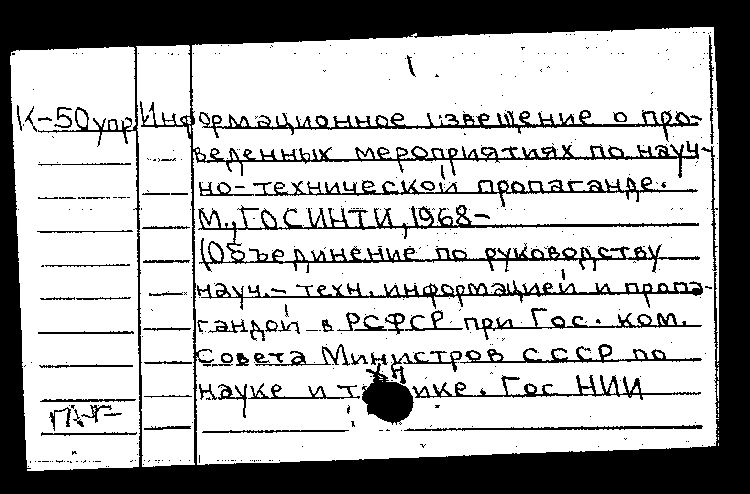 1
К-50упр. Информационное извещение о про-
веденных мероприятиях по науч-
но-технической пропаганде.
М., ГОСИНТИ, 1968-
(Объединение по руководству
науч.-техн. информацией и пропа-
гандой в РСФСР при Гос. ком.
Совета Министров СССР по
науке и технике. Гос НИИ